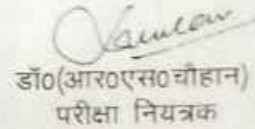 डॉ0(आर0एस0चौहान)
परीक्षा नियत्रक